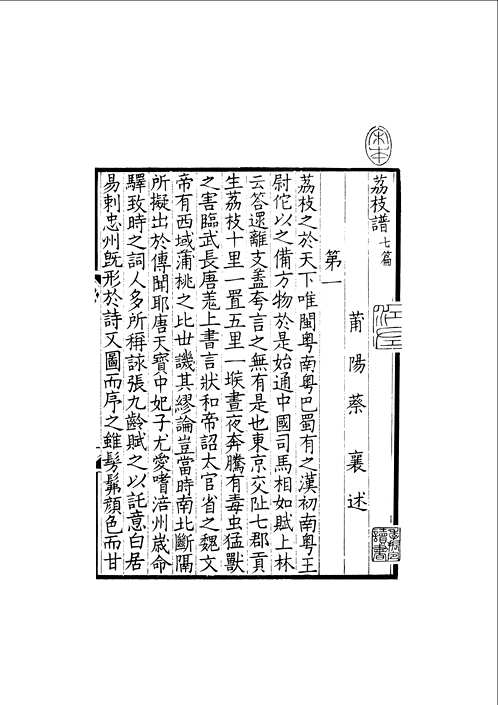 荔枝譜七篇
莆陽蔡襄述
第一
荔枝之於天下唯閩粤南粤巴蜀有之漢初南粤王
尉佗以之備方物於是始通中國司馬相如賦上林
云答遝離支葢夸言之無有是也東京交阯七郡貢
生荔枝十里一置五里一堠晝夜奔騰有毒虫猛獸
之害臨武長唐羌上書言狀和帝詔太官省之魏文
帝有西域蒲桃之比世譏其繆論豈當時南北斷隔
所擬出於傳聞耶唐天寶中妃子尤愛嗜涪州歲命
驛致時之詞人多所稱詠張九齡賦之以託意白居
易刺忠州旣形於詩又圖而序之雖髣髴顔色而甘
宋本